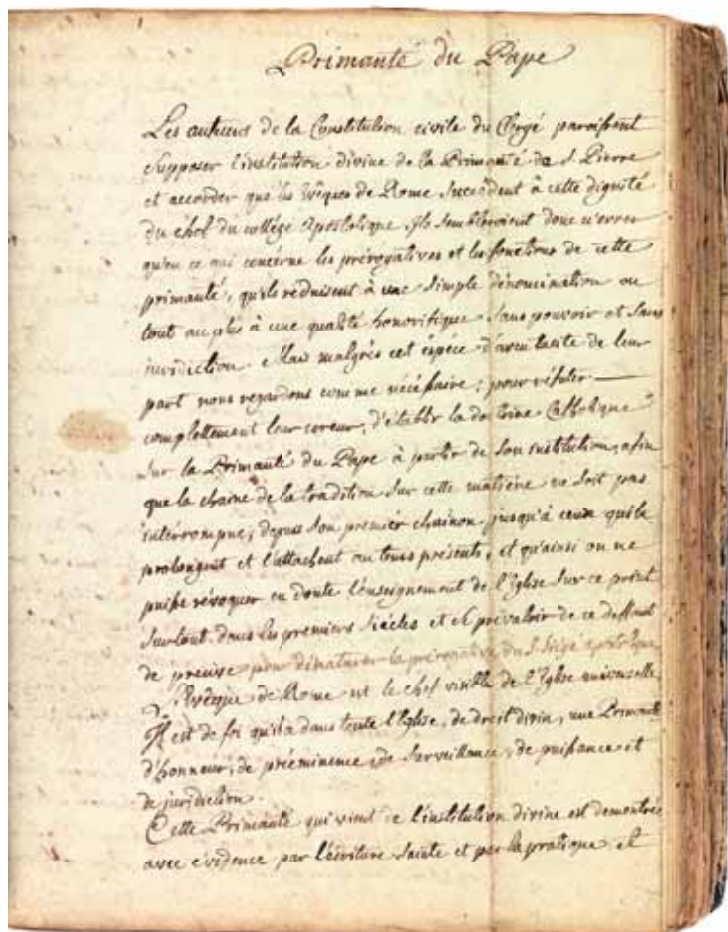 Primauté du Pape
Les auteurs de la Constitution civile du Clergé paroissent
supposer l'institution divine de la Primauté de S. Pierre
et accorder que les Evêques de Rome succèdent à cette dignité
du chef du collége Apostolique. Ils sembleroient donc n'errer
qu'en ce qui concerne les prérogatives et les fonctions de cette
primauté, qu'ils réduisent à une simple dénomination ou
tout au plus à une qualité honorifique sans pouvoir et sans
jurediction. Mais malgrés cet espèce d'aveu tacite de leur
part nous regardons comme nécéssaire, pour réfuter
complettement leur erreur, d'établir la doctrine Catholique
sur la Primauté du Pape à partir de son institution, afin
que la chaine de la tradition sur cette matiére ne soit pas
interrompue, depuis son premier chainon, jusqu'à ceux qui la
prolongent et l'attachent au tems présents, et qu'ainsi on ne
puisse révoquer en doute l'enseignement de l'Eglise sur ce point
surtout dans les premiers siécles et se prévaloir de ce deffaut
de preuve pour dénaturer la prérogative du S. Siége apostolique
L'Evêque de Rome est le chef visible de l'Eglise universelle
Il est de foi qu'il a dans toute l'Eglise, de droit divin, une Primauté
d'honneur, de prééminence, de surveillance, de puissance et
de juridiction.
Cette Primauté qui vient de l'institution divine est demontrée
avec évidence par l'écriture Sainte et par la pratique et